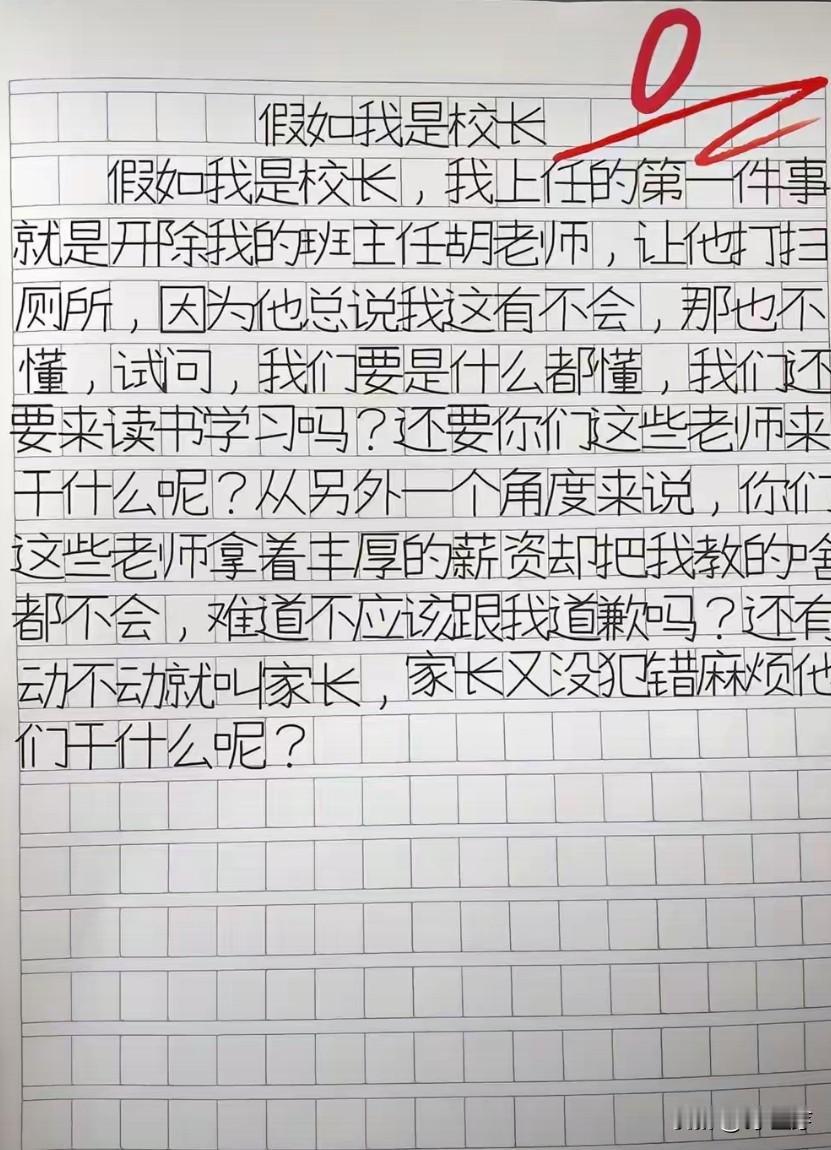 0
假如我是校长
假如我是校长，我上任的第一件事
就是开除我的班主任胡老师，让他打扫
厕所，因为他总说我这有不会，那也不
懂，试问，我们要是什么都懂，我们还
要来读书学习吗？还要你们这些老师来
干什么呢？从另外一个角度来说，你们
这些老师拿着丰厚的薪资却把我教的啥
都不会，难道不应该跟我道歉吗？还有
动不动就叫家长，家长又没犯错麻烦他
们干什么呢？